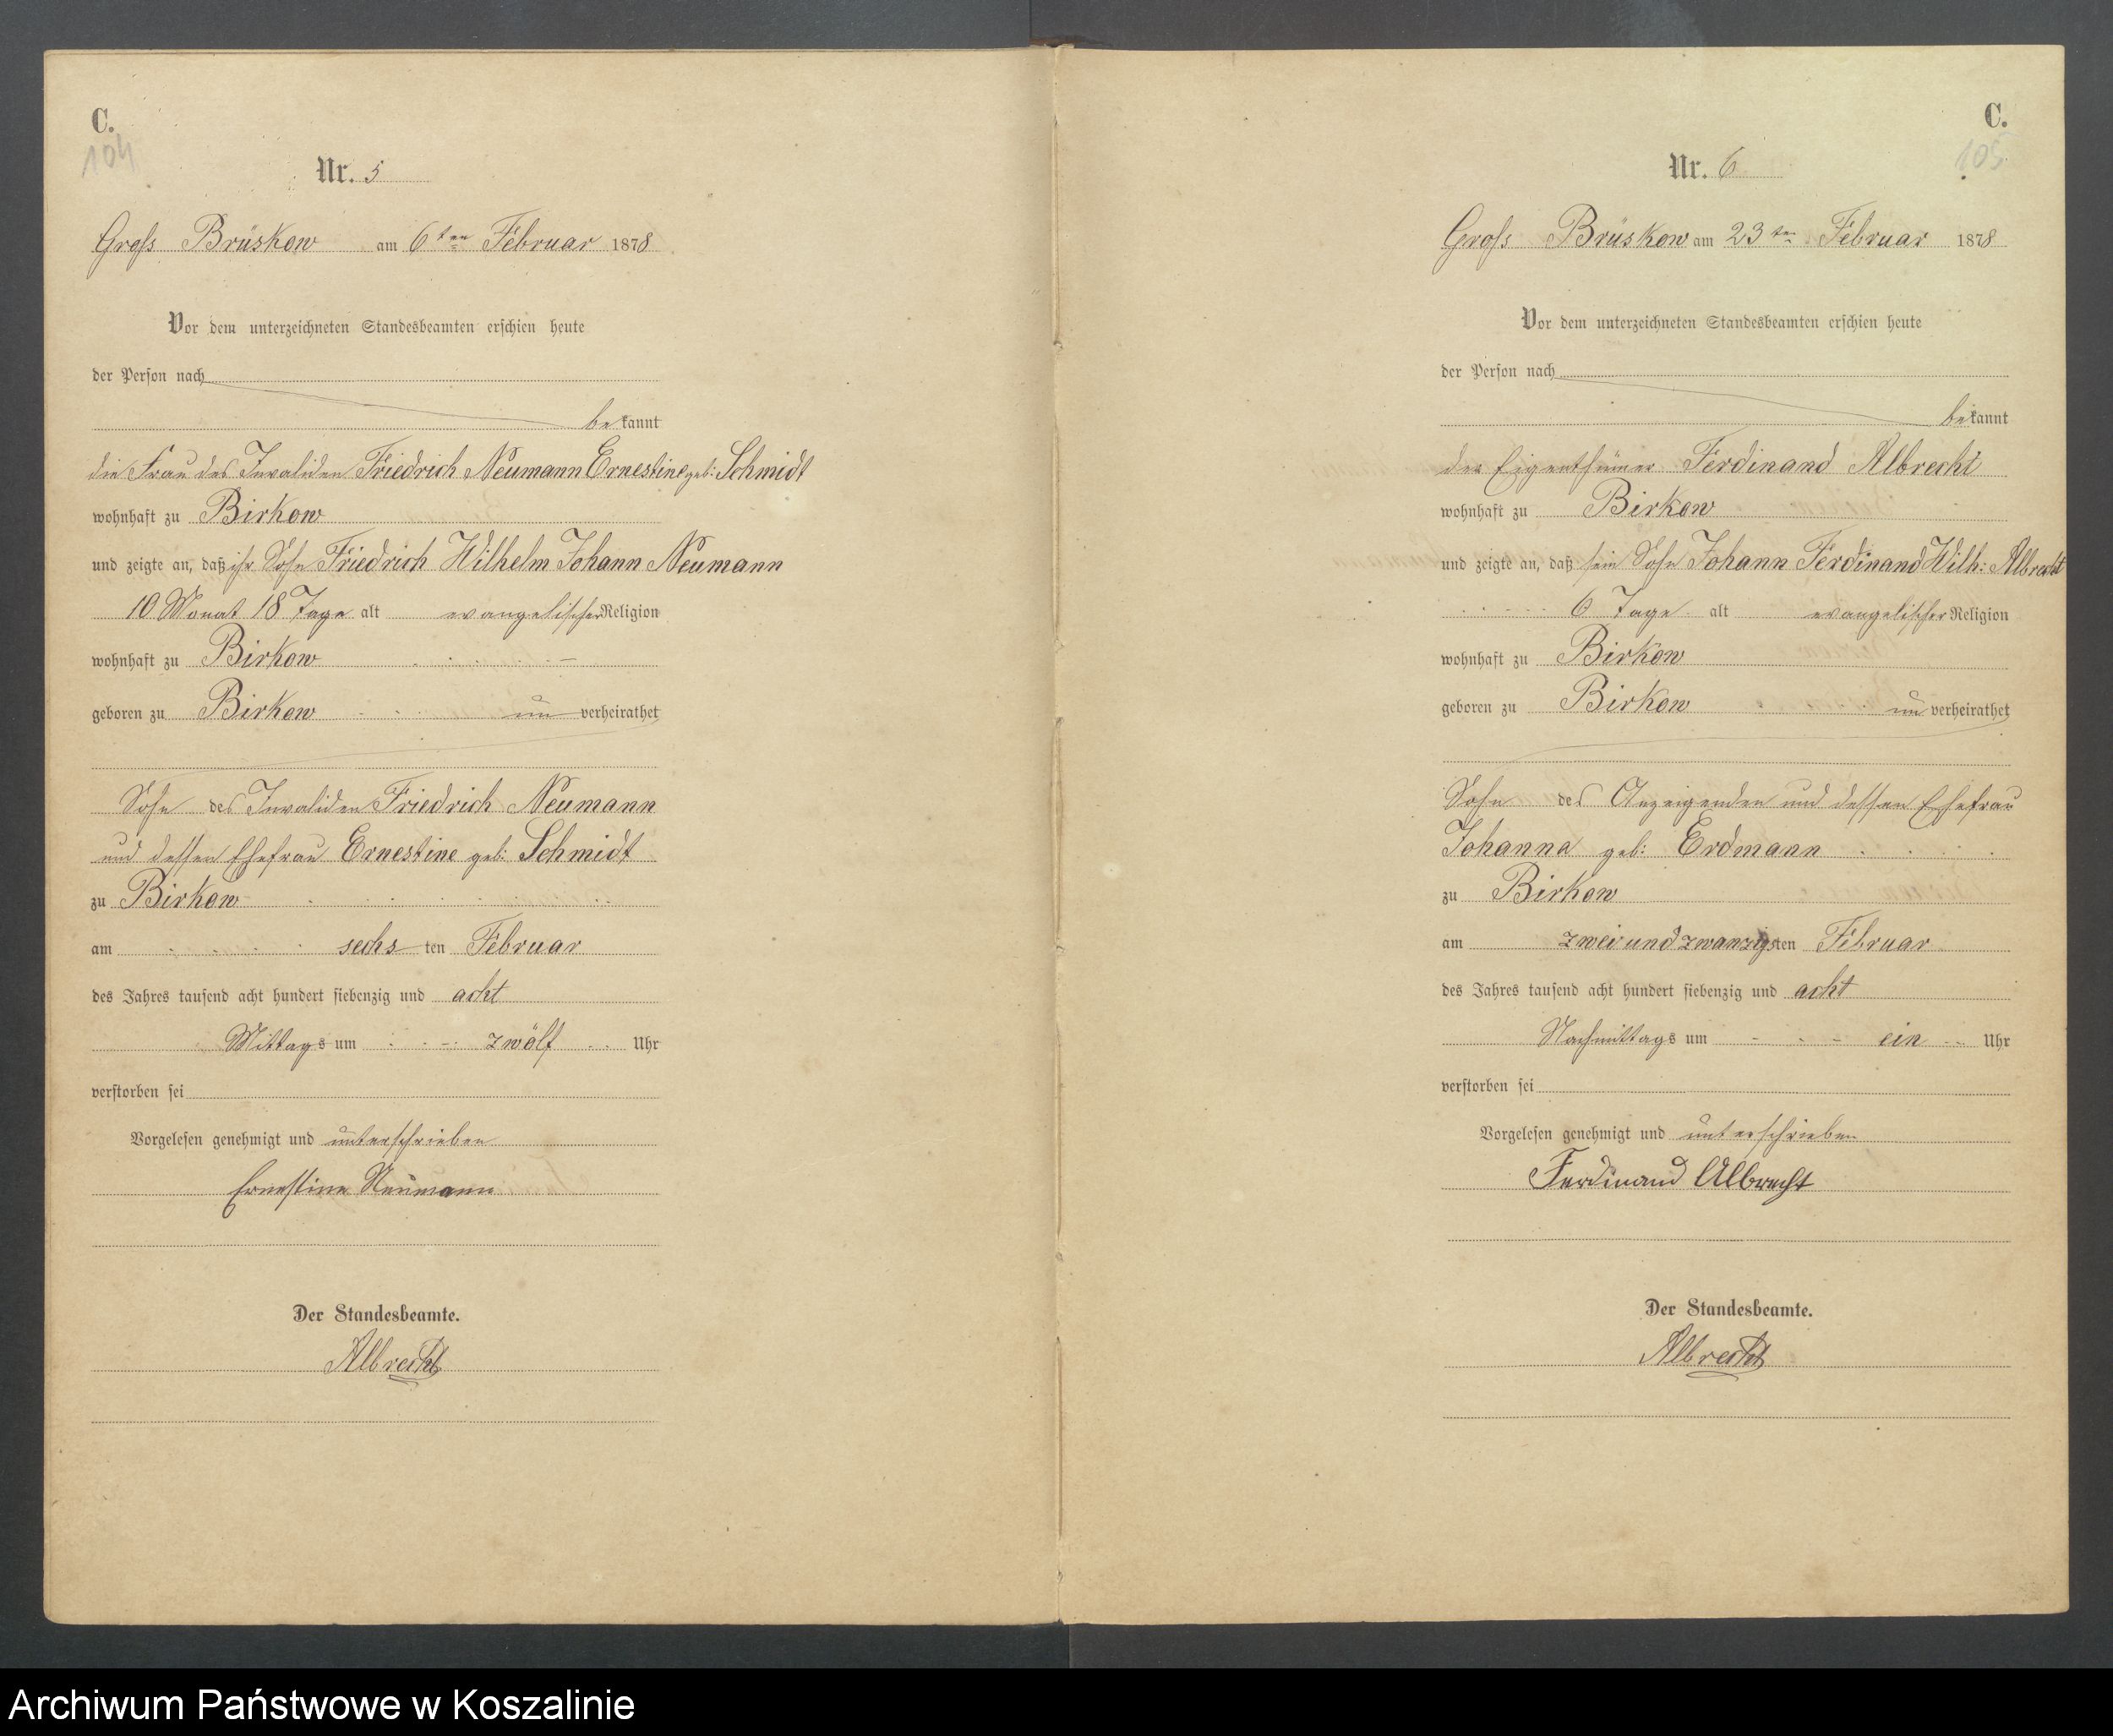 C.
104
Nr. 5
Gross Brüskow am 6ten Februar 1878
Vor dem unterzeichneten Standesbeamten erschien heute
der Person nach
bekannt
die Frau des Invaliden Friedrich Neumann Ernestine geb: Schmidt
wohnhaft zu Birkow
und zeigte an, daß ihr Sohn Friedrich Wilhelm Johann Neumann
10 Monat 18 Tage alt evangelischer Religion
wohnhaft zu Birkow
geboren zu Birkow un verheirathet
Sohn des Invaliden Friedrich Neumann
und dessen Ehefrau Ernestine geb: Schmidt
zu Birkow
am sechs ten Februar
des Jahres tausend acht hundert siebenzig und acht
Mittags um zwölf Uhr
verstorben sei
Vorgelesen genehmigt und unterschrieben
Ernestine Neumann
Der Standesbeamte.
Albrecht
C.
105
Nr. 6
Gross Brüskow am 23ten Februar 1878
Vor dem unterzeichneten Standesbeamten erschien heute
der Person nach
bekannt
der Eigenthümer Ferdinand Albrecht
wohnhaft zu Birkow
und zeigte an, daß sein Sohn Johann Ferdinand Wilh: Albrecht
6 Tage alt evangelischer Religion
wohnhaft zu Birkow
geboren zu Birkow un verheirathet
Sohn des Anzeigenden und dessen Ehefrau
Johanna geb: Erdmann
zu Birkow
am zwei und zwanzigsten Februar
des Jahres tausend acht hundert siebenzig und acht
Nachmittags um ein Uhr
verstorben sei
Vorgelesen genehmigt und unterschrieben
Ferdinand Albrecht
Der Standesbeamte.
Albrecht
Archiwum Państwowe w Koszalinie